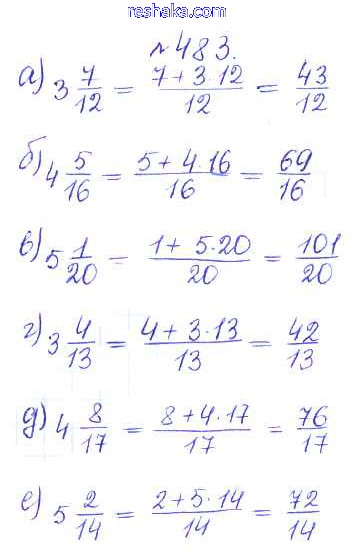 reshaka.com
№483.
а) 3 7/12 = (7+3·12)/12 = 43/12
б) 4 5/16 = (5+4·16)/16 = 69/16
в) 5 1/20 = (1+5·20)/20 = 101/20
г) 3 4/13 = (4+3·13)/13 = 42/13
д) 4 8/17 = (8+4·17)/17 = 76/17
е) 5 2/14 = (2+5·14)/14 = 72/14